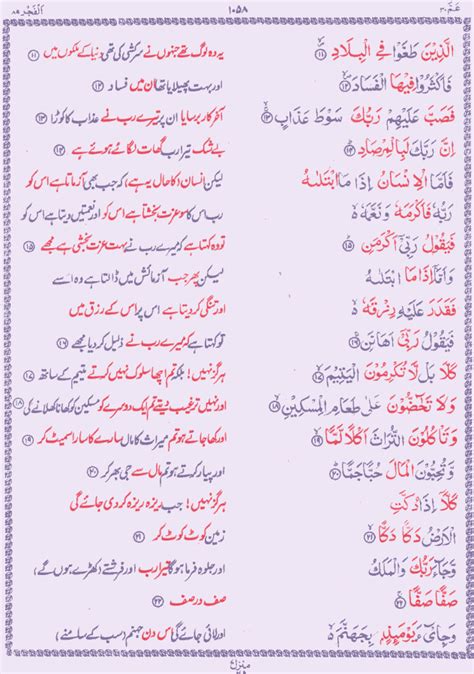 عَمَّ ٣٠ ١٠٥٨ اَلْفَجْر ٨٩
الَّذِيْنَ طَغَوْا فِي الْبِلَادِ ۝۱۱ یہ وہ لوگ تھے جنہوں نے سرکشی کی تھی دنیا کے ملکوں میں ۝۱۱
فَاَكْثَرُوْا فِيْهَا الْفَسَادَ ۝۱۲ اور بہت پھیلایا تھا ان میں فساد ۝۱۲
فَصَبَّ عَلَيْهِمْ رَبُّكَ سَوْطَ عَذَابٍ ۝۱۳ آخرکار برسایا ان پر تیرے رب نے عذاب کا کوڑا ۝۱۳
اِنَّ رَبَّكَ لَبِالْمِرْصَادِ ۝۱۴ بے شک تیرا رب گھات لگائے ہوئے ہے ۝۱۴
فَاَمَّا الْاِنْسَانُ اِذَا مَا ابْتَلٰىهُ لیکن انسان (کا حال یہ ہے) کہ جب بھی آزماتا ہے اس کو
رَبُّهٗ فَاَكْرَمَهٗ وَنَعَّمَهٗ رب اس کا سو عزت بخشتا ہے اس کو اور نعمتیں دیتا ہے اس کو
فَيَقُوْلُ رَبِّيْٓ اَكْرَمَنِ ۝۱۵ تو وہ کہتا ہے کہ میرے رب نے بہت عزت بخشی ہے مجھے ۝۱۵
وَاَمَّآ اِذَا مَا ابْتَلٰىهُ لیکن پھر جب آزمائش میں ڈالتا ہے وہ اسے
فَقَدَرَ عَلَيْهِ رِزْقَهٗ اور تنگی کر دیتا ہے اس پر اس کے رزق میں
فَيَقُوْلُ رَبِّيْٓ اَهَانَنِ ۝۱۶ تو کہتا ہے کہ میرے رب نے ذلیل کر دیا مجھے ۝۱۶
كَلَّا بَلْ لَّا تُكْرِمُوْنَ الْيَتِيْمَ ۝۱۷ ہرگز نہیں! بلکہ تم اچھا سلوک نہیں کرتے یتیم کے ساتھ ۝۱۷
وَلَا تَحٰٓضُّوْنَ عَلٰى طَعَامِ الْمِسْكِيْنِ ۝۱۸ اور نہیں ترغیب دیتے تم ایک دوسرے کو مسکین کو کھانا کھلانے کی ۝۱۸
وَتَاْكُلُوْنَ التُّرَاثَ اَكْلًا لَّمًّا ۝۱۹ اور کھا جاتے ہو تم میراث کا مال سارے کا سارا سمیٹ کر ۝۱۹
وَّتُحِبُّوْنَ الْمَالَ حُبًّا جَمًّا ۝۲۰ اور پیار کرتے ہو تم مال سے جی بھر کر ۝۲۰
كَلَّآ اِذَا دُكَّتِ ہرگز نہیں! جب ریزہ ریزہ کر دی جائے گی
الْاَرْضُ دَكًّا دَكًّا ۝۲۱ زمین کوٹ کوٹ کر ۝۲۱
وَّجَآءَ رَبُّكَ وَالْمَلَكُ اور جلوہ فرما ہوگا تیرا رب اور فرشتے (کھڑے ہوں گے)
صَفًّا صَفًّا ۝۲۲ صف در صف ۝۲۲
وَجِايْٓءَ يَوْمَئِذٍۢ بِجَهَنَّمَ اور لائی جائے گی اس دن جہنم (سب کے سامنے)
منزل ۷